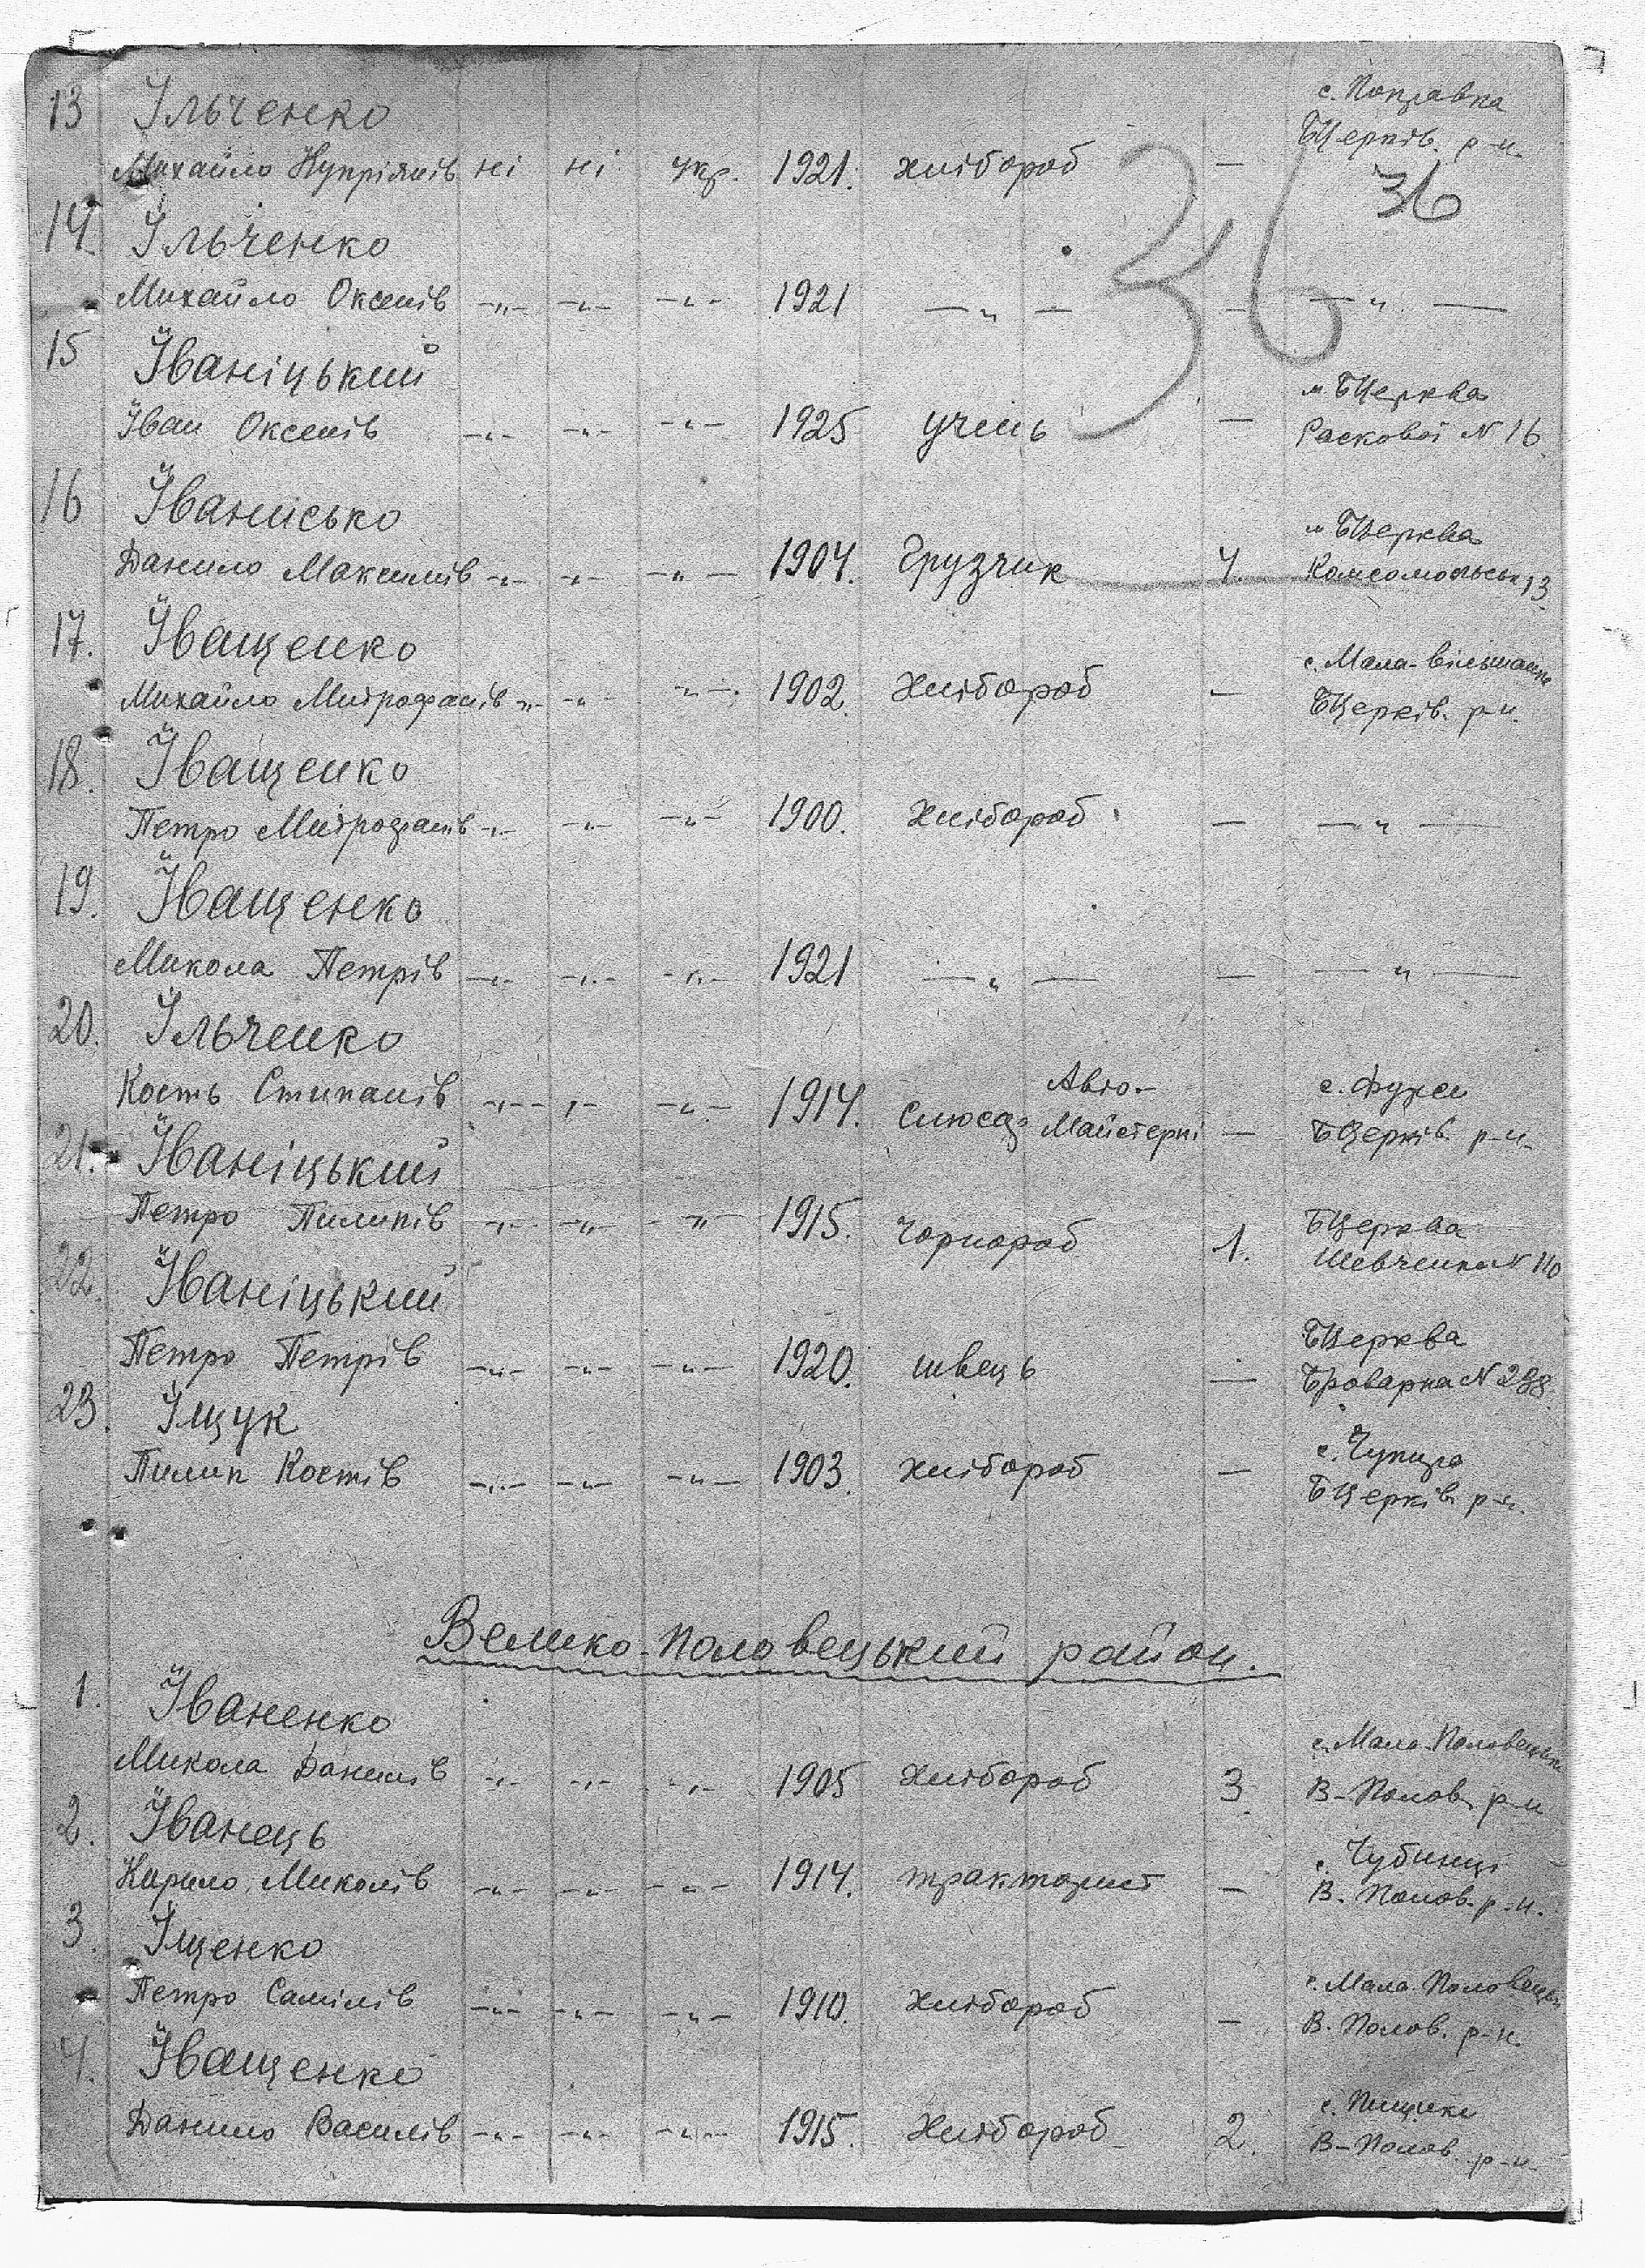 с. Поправка
13 Ільченко
БЦерків. р-н.
Михайло Купріянів ні ні укр. 1921. хлібороб —
36
36
14. Ільченко
Михайло Оксенів -„- -„- -„- 1921 — „ — — — „ —
15 Іваніцький
м БЦерква
Іван Оксенів -„- -„- -„- 1925 учень — Раскової N 16
16 Іванисько
м БЦерква
Данило Максимів -„- -„- -„- 1904. Грузчик 4. Комсомольськ 13.
17. Іващенко
с. Мала-Вільшанка
Михайло Митрофанів -„- -„- -„- 1902. Хлібороб — БЦерків. р-н.
18. Іващенко
Петро Митрофанів -„- -„- -„- 1900. Хлібороб — — „ —
19. Іващенко
Микола Петрів -„- -„- -„- 1921 — „ — — — „ —
20. Ільченко
Авто- с. Фурси
Кость Стипанів -„- -„- -„- 1914. Слюсар Майстерні — БЦерків. р-н.
21. Іваніцький
Петро Пилипів -„- -„- -„- 1915. Чорнороб 1. БЦерква
Шевченка N 110
22. Іваніцький
БЦерква
Петро Петрів -„- -„- -„- 1920. швець — Броварна N 288.
23. Іщук
с. Чупира
Пилип Костів -„- -„- -„- 1903. хлібороб — БЦерків р-н.
Велико-Половецький район.
1. Іваненко
с. Мало-Половецьке
Микола Данилів -„- -„- -„- 1905 Хлібороб 3. В-Полов. р-н
2. Іванець
с. Чубинці
Кирило Миколів -„- -„- -„- 1914. тракторист — В. Полов. р-н.
3. Іщенко
с. Мала-Половецьк
Петро Самілів -„- -„- -„- 1910. Хлібороб — В. Полов. р-н.
4. Іващенко
с. Пищики
Данило Василів -„- -„- -„- 1915. Хлібороб 2. В-Полов. р-н.